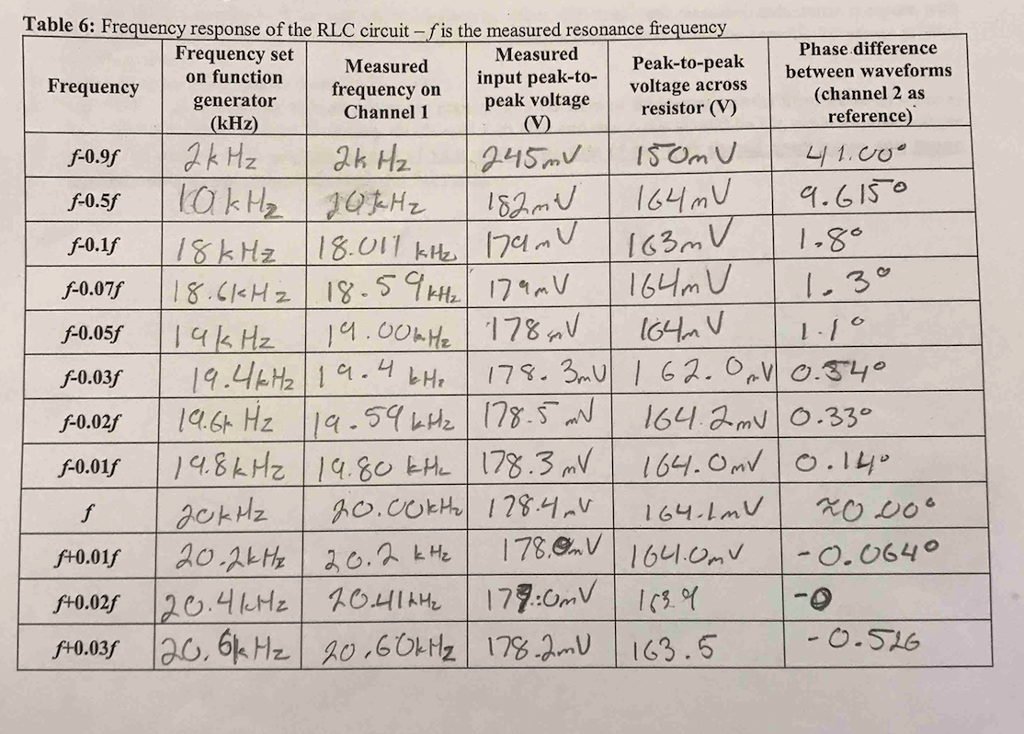 Table 6: Frequency response of the RLC circuit – f is the measured resonance frequency
Frequency | Frequency set on function generator (kHz) | Measured frequency on Channel 1 | Measured input peak-to-peak voltage (V) | Peak-to-peak voltage across resistor (V) | Phase difference between waveforms (channel 2 as reference)
f-0.9f | 2kHz | 2kHz | 245mV | 150mV | 41.00°
f-0.5f | 10kHz | 10kHz | 182mV | 164mV | 9.615°
f-0.1f | 18kHz | 18.011 kHz | 179mV | 163mV | 1.8°
f-0.07f | 18.6kHz | 18.59kHz | 179mV | 164mV | 1.3°
f-0.05f | 19kHz | 19.00kHz | 178mV | 164mV | 1.1°
f-0.03f | 19.4kHz | 19.4 kHz | 178.3mV | 162.0mV | 0.54°
f-0.02f | 19.6kHz | 19.59kHz | 178.5mV | 164.2mV | 0.33°
f-0.01f | 19.8kHz | 19.80 kHz | 178.3mV | 164.0mV | 0.14°
f | 20kHz | 20.00kHz | 178.4mV | 164.1mV | ≈0.00°
f+0.01f | 20.2kHz | 20.2 kHz | 178.0mV | 164.0mV | -0.064°
f+0.02f | 20.4kHz | 20.41kHz | 163.9 | -0
f+0.03f | 20.6kHz | 20.60kHz | 178.2mV | 163.5 | -0.526